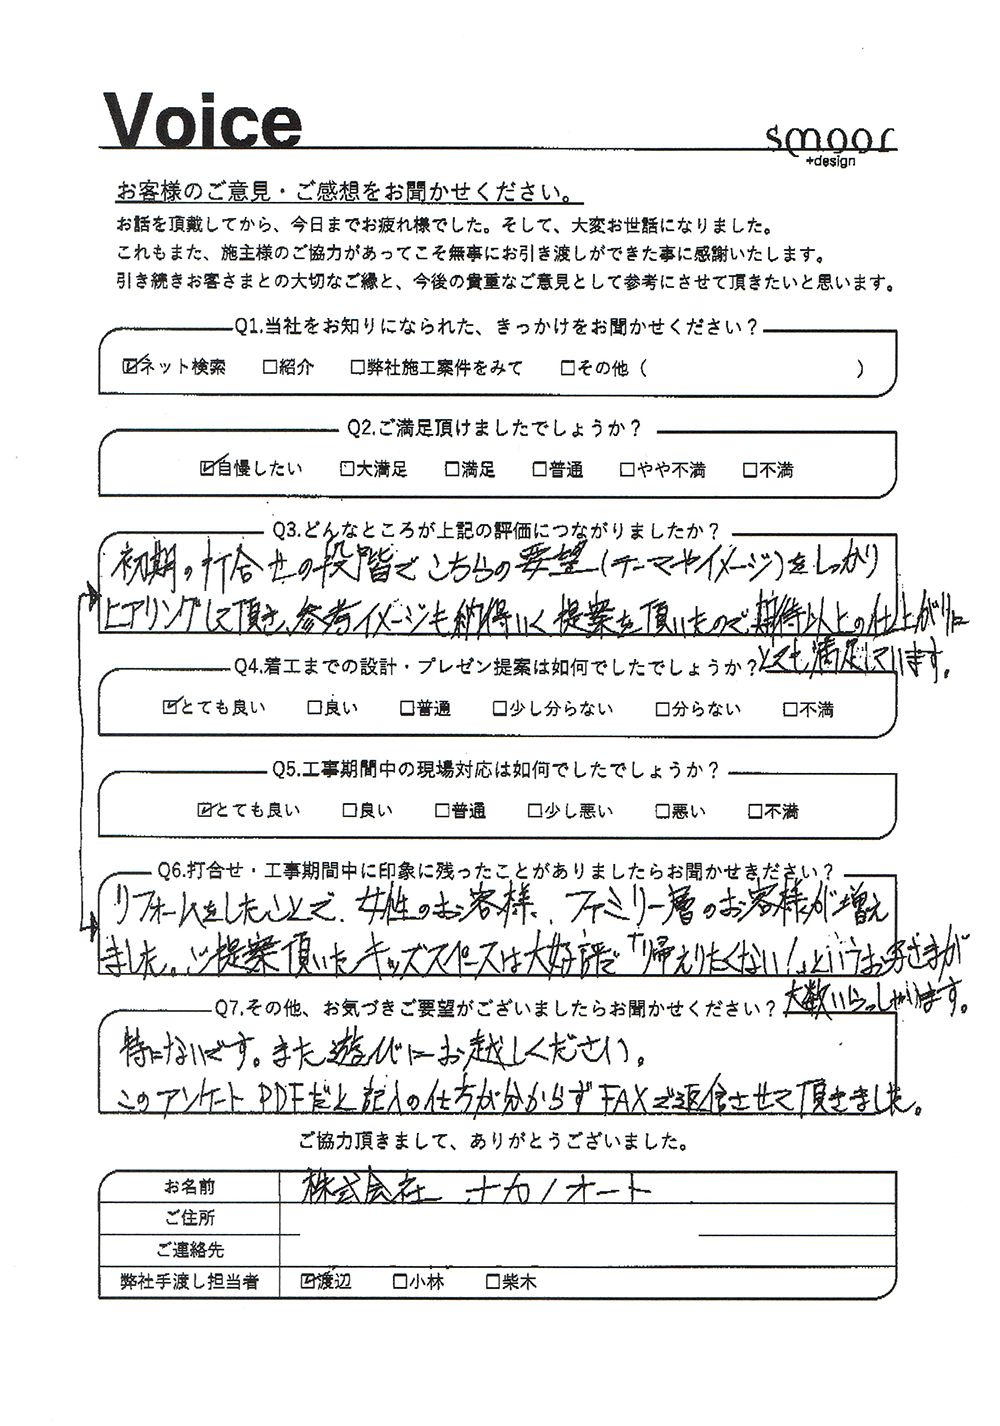 Voice
smoor
+design
お客様のご意見・ご感想をお聞かせください。
お話を頂戴してから、今日までお疲れ様でした。そして、大変お世話になりました。
これもまた、施主様のご協力があってこそ無事にお引き渡しができた事に感謝いたします。
引き続きお客さまとの大切なご縁と、今後の貴重なご意見として参考にさせて頂きたいと思います。
Q1.当社をお知りになられた、きっかけをお聞かせください？
☑ネット検索 □紹介 □弊社施工案件をみて □その他（ ）
Q2.ご満足頂けましたでしょうか？
☑自慢したい □大満足 □満足 □普通 □やや不満 □不満
Q3.どんなところが上記の評価につながりましたか？
初期の打合せの段階でこちらの要望(テーマやイメージ)をしっかり
ヒアリングして頂き、参考イメージも納得いく提案を頂いたので、期待以上の仕上がりに
とても満足しています。
Q4.着工までの設計・プレゼン提案は如何でしたでしょうか？
☑とても良い □良い □普通 □少し分らない □分らない □不満
Q5.工事期間中の現場対応は如何でしたでしょうか？
☑とても良い □良い □普通 □少し悪い □悪い □不満
Q6.打合せ・工事期間中に印象に残ったことがありましたらお聞かせきださい？
リフォームをしたことで、女性のお客様、ファミリー層のお客様が増え
ました。ご提案頂いたキッズスペースは大好評で「帰えりたくない！」というお子さまが
大数いらっしゃります。
Q7.その他、お気づきご要望がございましたらお聞かせください？
特にないです。また遊びにお越しください。
このアンケート PDFだと記入の仕方が分からずFAXで返信させて頂きました。
ご協力頂きまして、ありがとうございました。
お名前 株式会社 ナカノオート
ご住所
ご連絡先
弊社手渡し担当者 ☑渡辺 □小林 □柴木